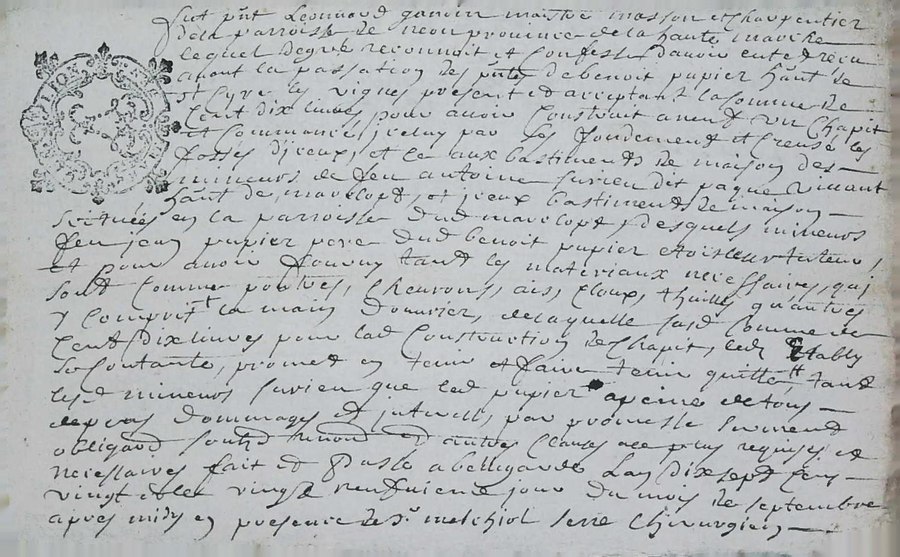 fut pñt Leonnard gandin maistre masson et charpentier
de la parroisse de neou province de la haute marche
lequel degré reconnoit et confesse davoir entdt receu
avant la passation des pñtes de benoit papier hant de
st Cyre les vignes present et acceptant la somme de
Cent dix livres pour avoir construit a neuf un Chapit
et commancé iceluy par les fondement et creuse les
fosses diceux, et ce aux bastiments de maison des
mineurs de feu antoine surieu dit paque vivant
hant de marclopt, et iceux bastiments de maison
scitués en la parroisse dud marclopt, desquels mineurs
feu jean papier pere dud benoit papier etoit leur tuteur,
et pour avoir fourny tant les materiaux necessaires, qui
sont comme poutres, chevrons, ais, cloux, thuille, qu'autres
y comprit la main d'ouvrier, de laquelle susd somme de
Cent dix livres pour lad construction de Chapit, led estably
se contante, promet en tenir et faire tenir quitte, tant
lesd mineurs surieu que led papier apeine de tous
depens dommages et interests, par promesse serment
obligaõn soubz renonõn et autres clauses a ce plus requises et
necessaires fait et passé a bellegarde Lan dix sept cens
vingt et le vingt neufvieme jour du mois de septembre
apres midy en presence de sr melchiol serre chirurgien